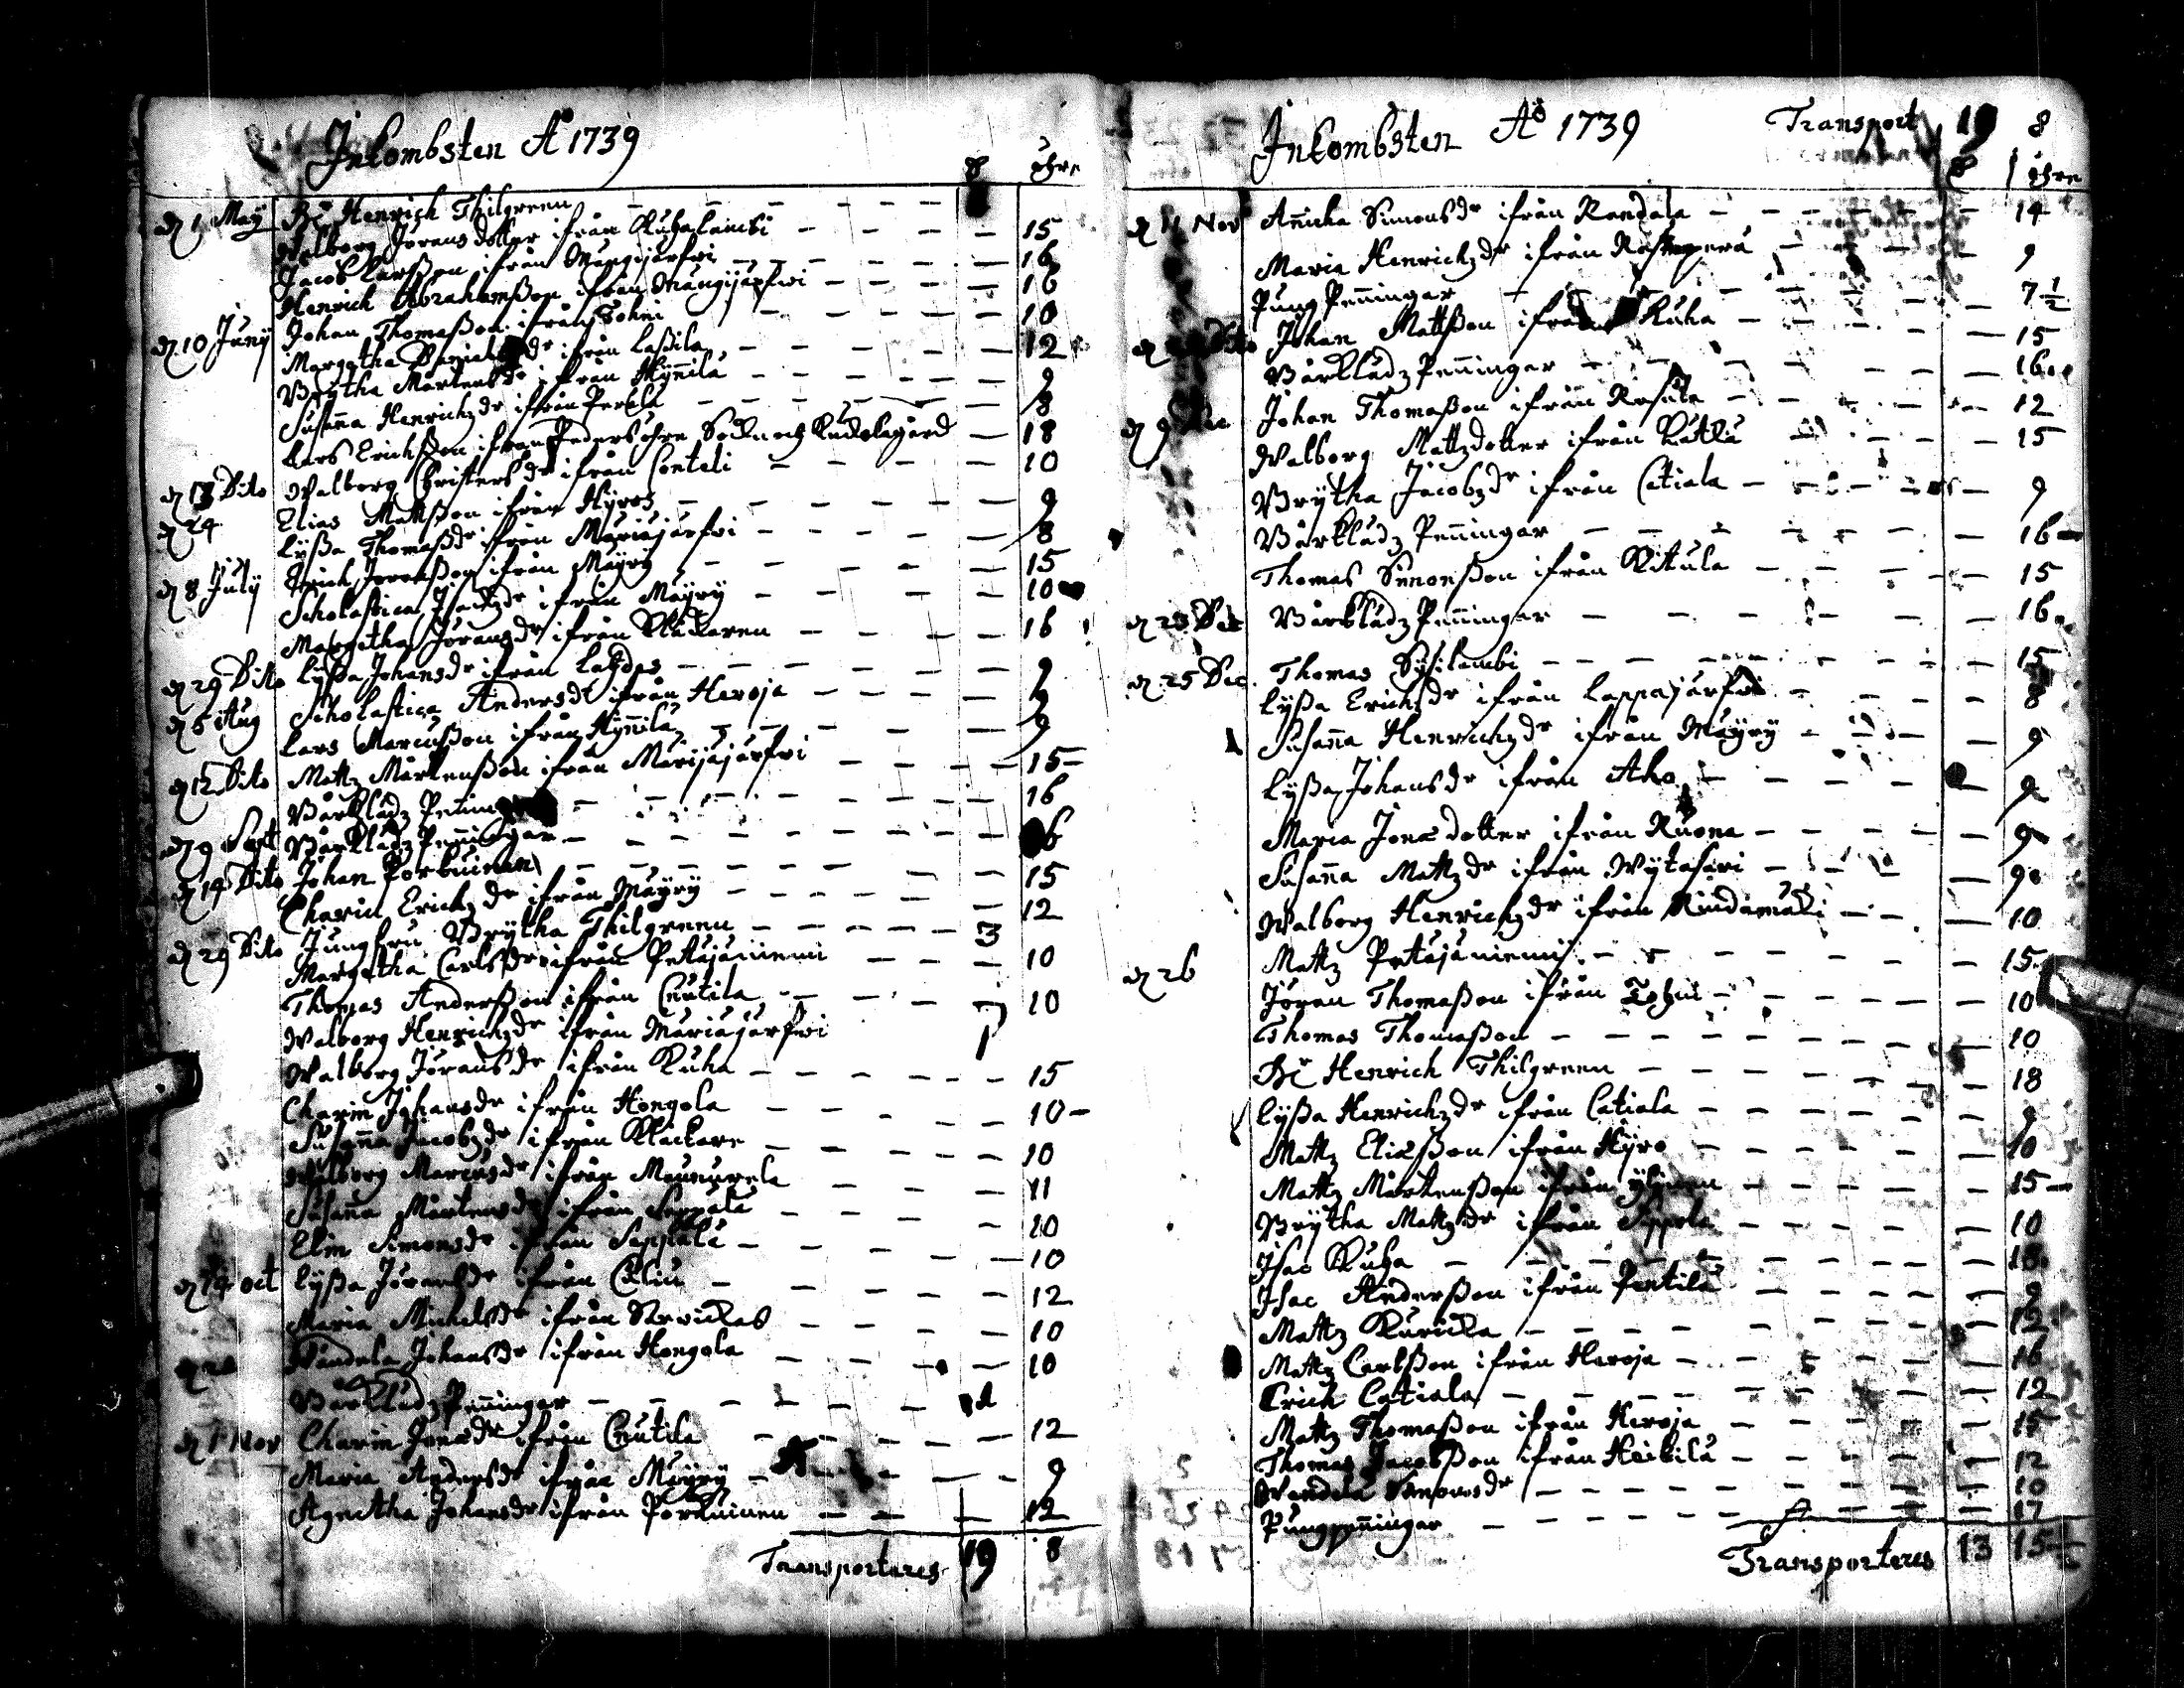 Inkombsten Aº 1739
öhre
d 1 May Hr Henrich Thilgreen
Walborg Jöransdotter ifrån Kuhalambi 15
Jacob Larsson ifrån 16
Henrich Abrahamsson ifrån 16
d 10 Juny Johan Thomasson ifrån Tohni 10
Margetha ifrån Lassila 12
Brÿtha Mårtensdr ifrån Hÿnnilä 9
Susanna Henrichzdr ifrån Perälä 8
Lars Erichsson ifrån Pedersöhre Sockn och 18
d 13 Dito Walborg Christersdr ifrån Conteli 10
d 24 Elias Mattsson ifrån Hÿros 9
Lÿssa Thomassdr ifrån Mariajärfwi 8
d 8 July Erich ifrån Mäÿrÿ 15
Scholastica ifrån Mäÿrÿ 10
Margetha Jöransdr ifrån 16
d 29 Dito Lÿssa Johansdr ifrån 9
d 5 Aug Scholastica Andersdr ifrån Heroja 9
Lars Marcusson ifrån Hÿnnilä 9
d 12 Dito Mattz Mårtensson ifrån Marijajärfwi 15
Bårklädz Penningar 16
d 9 Sept Bårklädz Penningar 6
d 14 Dito Johan Porkuinen 15
Charin Erichzdr ifrån Mäÿrÿ 12
d 29 Dito Jungfru Brÿtha Thilgreen 3
Margetha Carlsdr ifrån Petäjäniemi 10
Thomas Andersson ifrån Cnutila 10
Walborg Henrichzdr ifrån Mariajärfwi
Walborg Jöransdr ifrån Kuha 15
Charin Johansdr ifrån Hongola 10
Susanna Jacobzdr ifrån Klackare 10
Walborg Marcusdr ifrån 11
Susanna Mårtensdr ifrån Seppälä 10
Elin Simonsdr ifrån Seppälä 10
d 14 Oct Lÿssa Jöransdr ifrån 12
Maria Michelsdr ifrån 10
Wendela Johansdr ifrån Hongola 10
Bårklädz Penningar
d 1 Nov Charin Jonæ dr ifrån Cnutila 12
Maria Andersdr ifrån Mäÿrÿ 9
Agnetha Johansdr ifrån Porkuinen 12
Transporteres 19 8
Inkombsten Aº 1739 Transport 19 8
öhre
d 11 Nov Annicka Simonsdr ifrån Randala 14
Maria Henrichzdr ifrån 9
Pung Penningar 7 1/2
Dito Johan Mattsson ifrån Kuha 15
Bårklädz Penningar 16
d 9 Johan Thomasson ifrån 12
Walborg Mattzdotter ifrån 15
Brÿtha Jacobzdr ifrån Catiala 9
Bårklädz Penningar 16
Thomas Simonsson ifrån Kitula 15
d 23 Dec Bårklädz Penningar 16
d 25 Dec Thomas Sÿsilambi 15
Lÿssa Erichsdr ifrån Lappajärfwi 8
Susanna Henrichzdr ifrån Mäÿrÿ 9
Lÿssa Johansdr ifrån Aho 9
Maria Jonæ dotter ifrån Ruona 9
Susanna Mattzdr ifrån Wÿtasari 9
Walborg Henrichzdr ifrån Rindamäki 10
d 26 Mattz Petäjäniemi 15
Jöran Thomasson ifrån Tohni 10
Thomas Thomasson 10
Hr Henrich Thilgreen 18
Lÿssa Henrichzdr ifrån Catiala 9
Mattz Eliæsson ifrån Hÿro 10
Mattz Mårtensson ifrån 15
Brÿtha Mattzdr ifrån 10
Isac Kuha 10
Isac Andersson ifrån Pentilä 9
Mattz Kuricka 12
Mattz Carlsson ifrån Heroja 16
Erich Catiala 12
Mattz Thomasson ifrån Heroja 15
Thomas Jacobsson ifrån Heikilä 12
Wendela Simonsdr 10
Pungpenningar 17
Transporteres 13 15